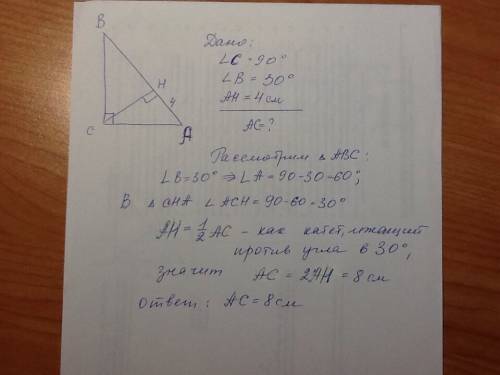 B
H
4
C
A
Дано:
∠C = 90°
∠B = 30°
AH = 4 см
AC = ?
Рассмотрим △ABC:
∠B = 30° ⇒ ∠A = 90-30=60°;
В △CHA ∠ACH = 90-60=30°
AH = 1/2 AC - как катет, лежащий
против угла в 30°,
значит AC = 2AH = 8 см
ответ: AC = 8 см